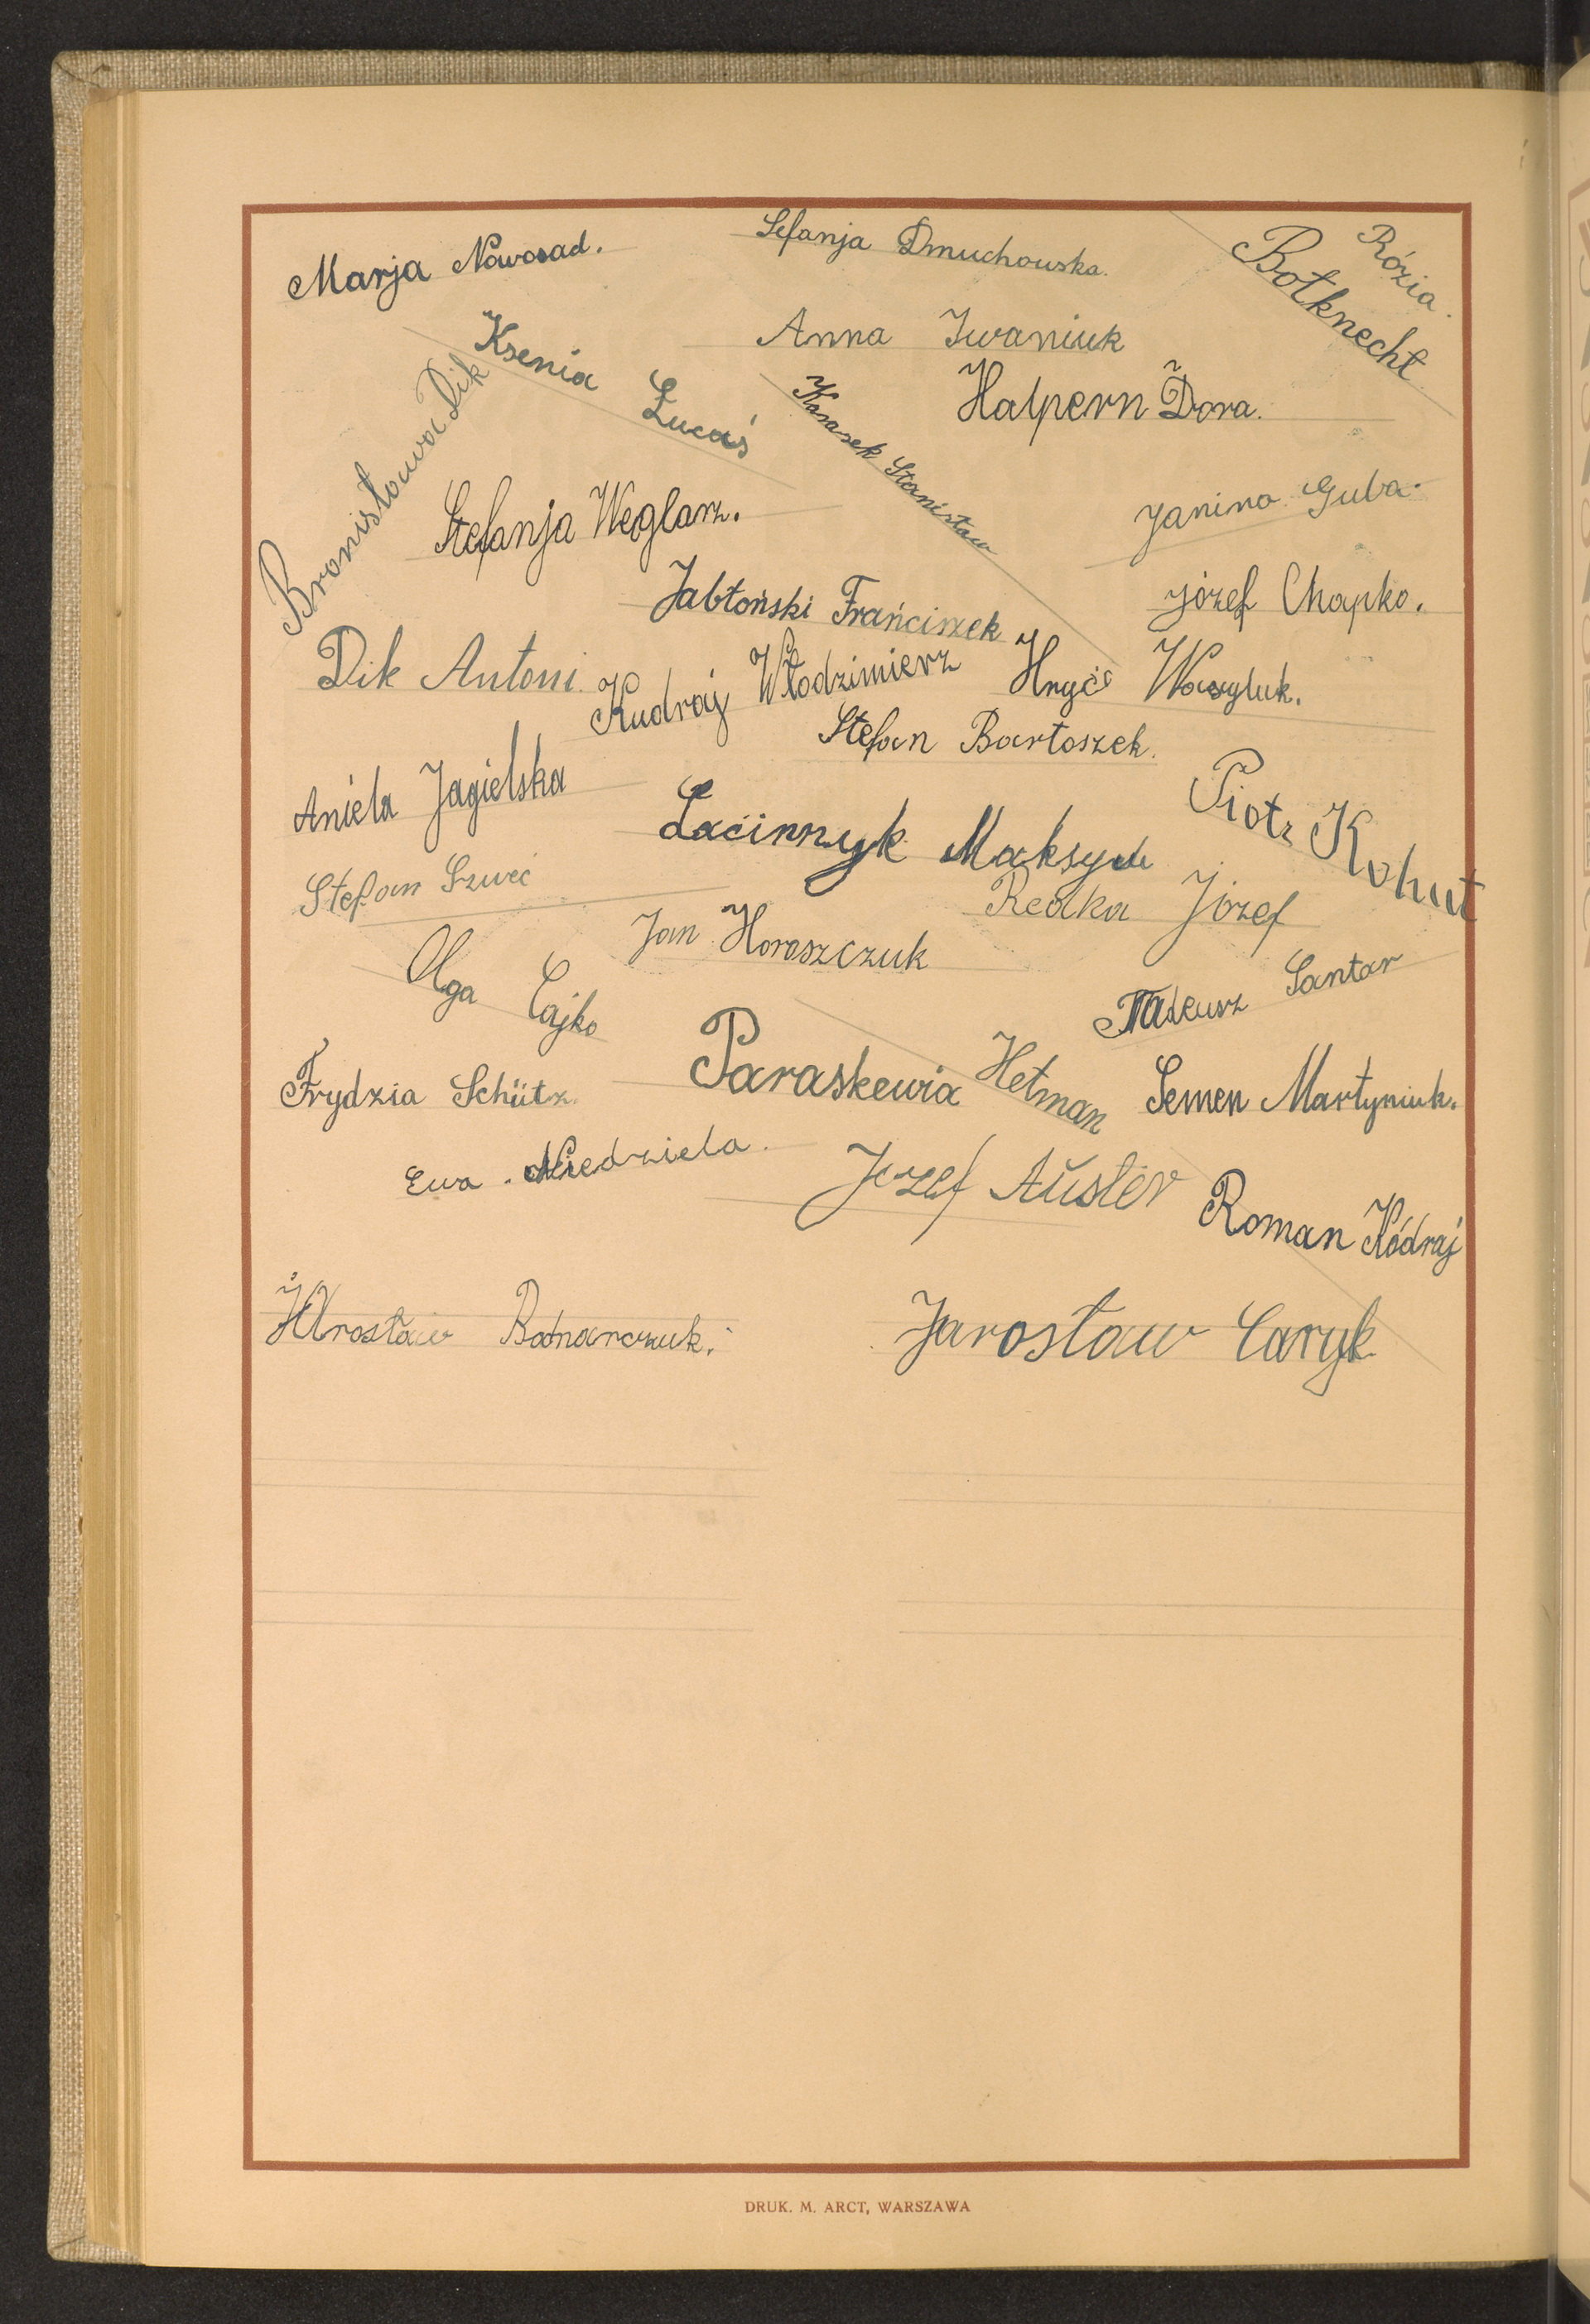 Marja Nowosad.
Sefanja Dmuchowska.
Rózia
Botknecht
Ksenia Łucaś
Anna Iwaniuk
Halpern Dora.
Bronisława Dik
Karasek Stanisław
Stefanja Weglarz.
Janina Guba
Jabłoński Frańciszek
Józef Chapko.
Dik Antoni.
Kudraj Włodzimierz
Hryć Wasyluk.
Stefan Bartoszek.
Aniela Jagielska
Piotr Kohut
Łacinnyk Maksym
Stefan Szweć
Redka Józef
Jan Haraszczuk
Olga Cajko
Tadeusz Santar
Frydzia Schütz.
Paraskewia Hetman
Semen Martyniuk.
Ewa Niedziela.
Jozef Auster
Roman Kódraj
Bodnarczuk.
Jarosław Caryk
DRUK. M. ARCT, WARSZAWA